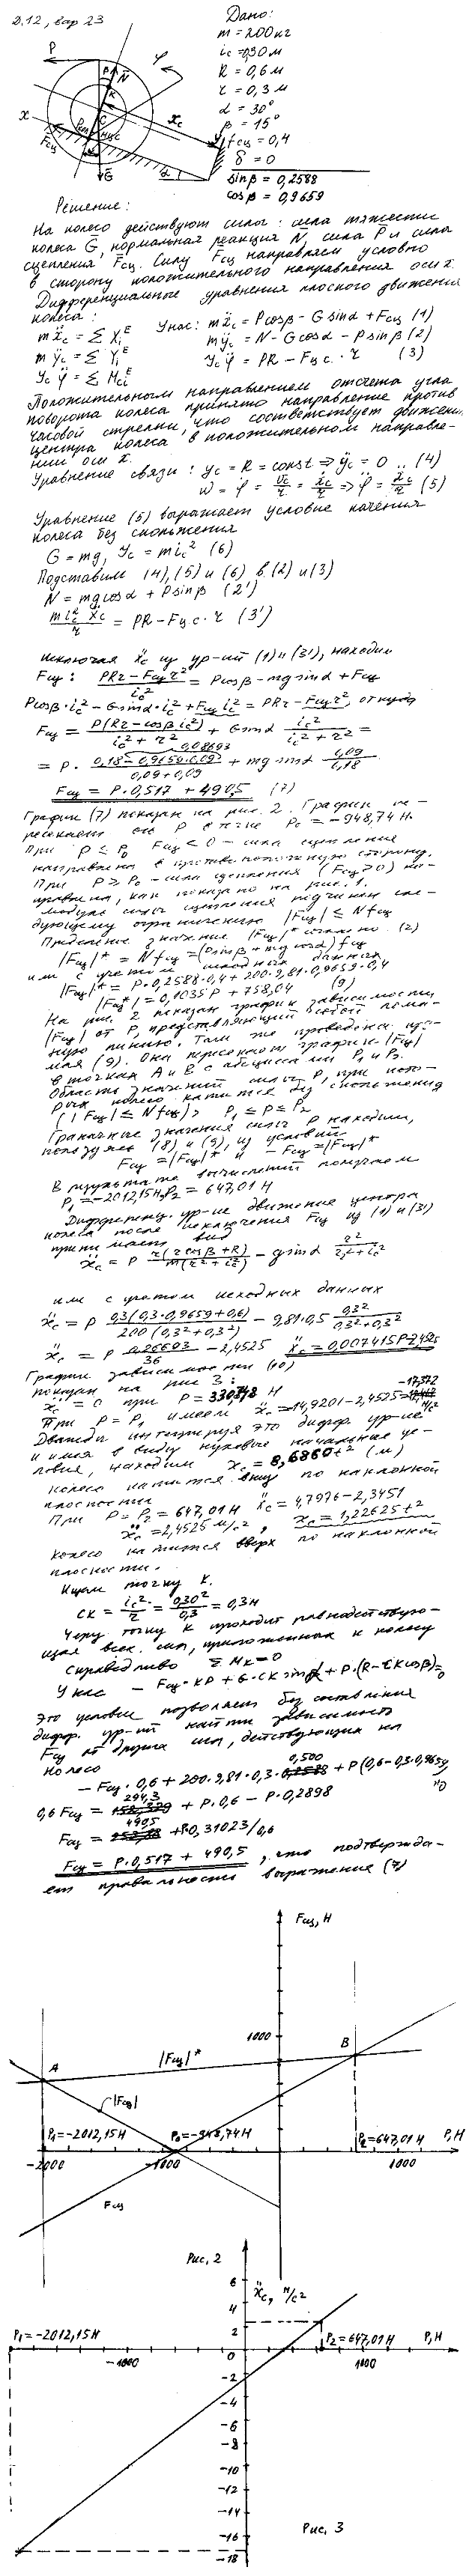 Д.12, вар 23
Дано:
m = 200 кг
ic = 0,30 м
R = 0,6 м
r = 0,3 м
α = 30°
β = 15°
fсц = 0,4
δ = 0
sinβ = 0,2588
cosβ = 0,9659
Решение:
На колесо действуют силы: сила тяжести
колеса G, нормальная реакция N, сила P и сила
сцепления Fсц. Силу Fсц направляем условно
в сторону положительного направления оси x.
Дифференциальные уравнения плоского движения
колеса:
mẍc = ΣXiE У нас: mẍc = Pcosβ - Gsinα + Fсц (1)
mÿc = ΣYiE mÿc = N - Gcosα - Psinβ (2)
Jcφ̈ = ΣMciE Jcφ̈ = PR - Fцс · r (3)
Положительным направлением отсчета угла
поворота колеса принято направление против
часовой стрелки, что соответствует движени
центра колеса в положительном направле-
нии оси x.
Уравнение связи: yc = R = const ⇒ ÿc = 0 .. (4)
ω = φ̇ = vc/r = ẋc/r ⇒ φ̈ = ẍc/r (5)
Уравнение (5) выражает условие качения
колеса без скольжения
G = mg, Jc = mic² (6)
Подставим (4), (5) и (6) в (2) и (3)
N = mgcosα + Psinβ (2')
mic² ẍc/r = PR - Fцс · r (3')
исключая ẍc из ур-ий (1) и (3'), находим
Fсц: PRr - Fсцr²/ic² = Pcosβ - mgsinα + Fсц
Pcosβ·ic² - Gsinα·ic² + Fсц ic² = PRr - Fсцr², откуда
Fсц = P(Rr - cosβ ic²)/ic² + r² + Gsinα ic²/ic² + r² =
0,08693
= P · 0,18 - 0,9659·0,09/0,09 + 0,09 + mg sinα 0,09/0,18
Fсц = P·0,517 + 490,5 (7)
График (7) показан на рис. 2. График пе-
ресекает ось P в точке P₀ = -948,74 Н.
При P ≤ P₀ Fсц < 0 - сила сцепления
направлена в противоположную сторону.
При P > P₀ - сила сцепления (Fсц > 0) на-
правлена, как показано на рис. 1.
Модуль силы сцепления подчинен сле-
дующему ограничению |Fсц| ≤ Nfсц
Предельное значение |Fсц|* согласно (2)
|Fсц|* = Nfсц = (Psinβ + mgcosα)fсц
или с учетом исходных данных
|Fсц|* = P·0,2588·0,4 + 200·9,81·0,9659·0,4
|Fсц|* = 0,1035P + 758,04 (9)
На рис. 2 показан график зависимости
|Fсц| от P, представляющий собой лома-
ную линию. Там же проведена пря-
мая (9). Она пересекает график |Fсц|
в точках A и B с абсциссами P₁ и P₂.
Область значений силы P, при кото-
рых колесо катится без скольжения
(|Fсц| ≤ Nfсц), P₁ ≤ P ≤ P₂
Граничные значения силы P находим,
пользуясь (8) и (9), из условий
Fсц = |Fсц|* и - Fсц = |Fсц|*
В результате вычислений получаем
P₁ = -2012,15Н, P₂ = 647,01 Н
Дифференц. ур-ие движение центра
колеса после исключения Fсц из (1) и (3')
принимает вид
ẍc = P r(rcosβ + R)/m(r² + ic²) - gsinα r²/r² + ic²
или с учетом исходных данных
ẍc = P 0,3(0,3·0,9659 + 0,6)/200(0,3² + 0,3²) - 9,81·0,5 0,3²/0,3² + 0,3²
ẍc = P 0,26693/36 - 2,4525 ẍc = 0,007415P - 2,4525
График зависимости (10)
показан на рис 3:
ẍc = 0 при P = 330,748 Н
При P = P₁ имеем ẍc = -14,9201 - 2,4525 = -17,372 м/с²
Дважды интегрируя это дифф. ур-ие
и имея в виду нулевые начальные ус-
ловия, находим xc = 8,6860t² (м)
колесо катится вниз по наклонной
плоскости
При P = P₂ = 647,01 Н ẍc = 4,7976 - 2,3451
ẍc = 2,4525 м/с², xc = 1,22625t²
Колесо катится вверх по наклонной
плоскости.
Ищем точку K.
CK = ic²/r = 0,30²/0,3 = 0,3 м
Через точку K проходит равнодействую-
щая всех сил, приложенных к колесу
справедливо ΣMк = 0
У нас - Fсц·KP + G·CK sinα + P·(R - CKcosβ) = 0
Это условие позволяет без составления
дифф. ур-ий найти зависимость
Fсц от других сил, действующих на
колесо
- Fсц·0,6 + 200·9,81·0,3·0,500 + P(0,6 - 0,3·0,9659) = 0
0,6 Fсц = 294,3 + P·0,6 - P·0,2898
Fсц = 490,5 + P·0,31023/0,6
Fсц = P·0,517 + 490,5, что подтвержда-
ет правильность выражения (7)
Fсц, Н
1000
A
B
|Fсц|*
|Fсц|
P₁=-2012,15Н
P₀=-948,74Н
P₂=647,01Н
P, Н
-2000
-1000
1000
Fсц
Рис, 2
ẍc, м/с²
6
4
2
P₁=-2012,15Н
P₂=647,01Н
P, Н
-1000
0
1000
-2
-4
-6
-8
-10
-12
-14
-16
-18
Рис, 3